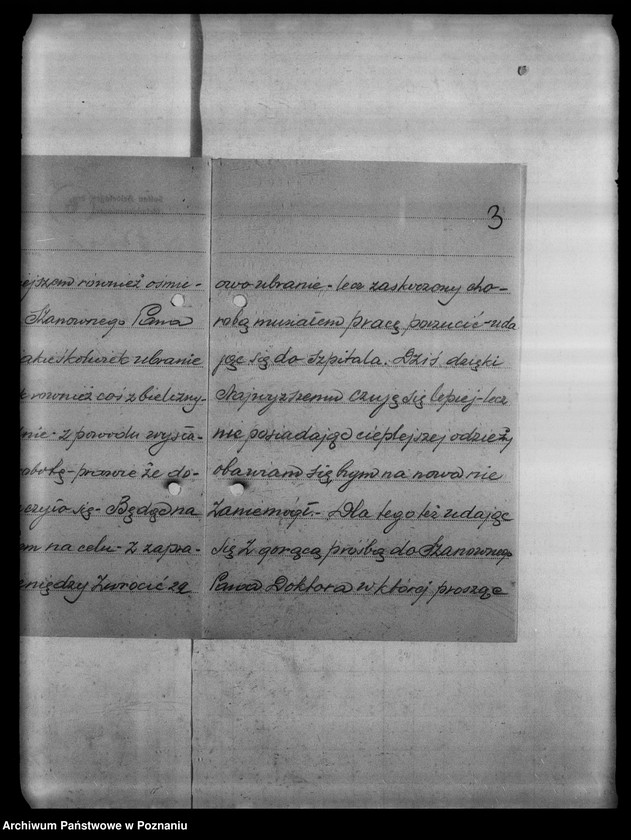 3
również ośmie-
Szanownego Pana
ubranie
również coś z bielizny-
z powodu wysła-
prawie że do-
się- Będąc na
na celu- z zapra-
zwrócić za
owo ubranie- lecz zaskoczony cho-
robą musiałem pracę porzucić- uda
jąc się do szpitala. Dziś dzięki
Najwyższemu czuję się lepiej- lecz
nie posiadając cieplejszej odzieży
obawiam się bym na nowo nie
zaniemógł.- Dla tego też udając
się z gorącą prośbą do Szanownego
Pana Doktora w której prosząc
Archiwum Państwowe w Poznaniu